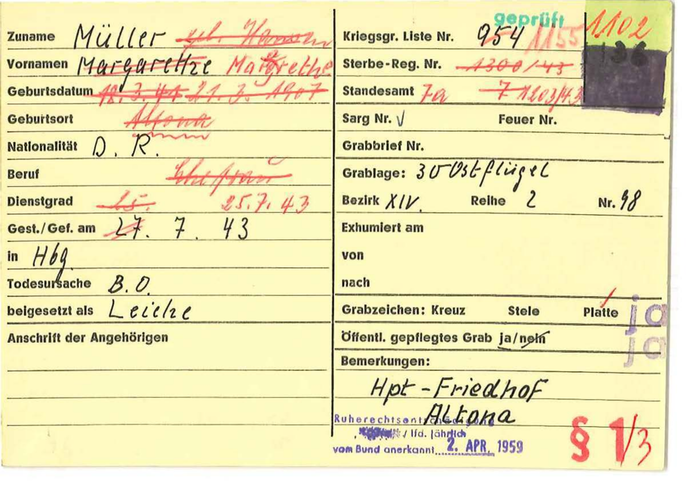 Zuname Müller geb. Hansen
Vornamen Margarethe Margrethe
Geburtsdatum 18.3.41 21.3.1907
Geburtsort Altona
Nationalität D. R.
Beruf Ehefrau
Dienstgrad 25.7.43
Gest./Gef. am 27. 7. 43
in Hbg
Todesursache B.O.
beigesetzt als Leiche
Anschrift der Angehörigen
geprüft
Kriegsgr. Liste Nr. 954 1155
1102
136
Sterbe-Reg. Nr. 1300/43
Standesamt 7a 7 1203/43
Sarg Nr. Feuer Nr.
Grabbrief Nr.
Grablage: 30 Ostflügel
Bezirk XIV. Reihe 2 Nr. 98
Exhumiert am
von
nach
Grabzeichen: Kreuz Stele Platte ja
Öffentl. gepflegtes Grab ja/nein ja
Bemerkungen:
Hpt-Friedhof
Altona
/ lfd. jährlich
vom Bund anerkannt 2. APR. 1959
§ 1/3